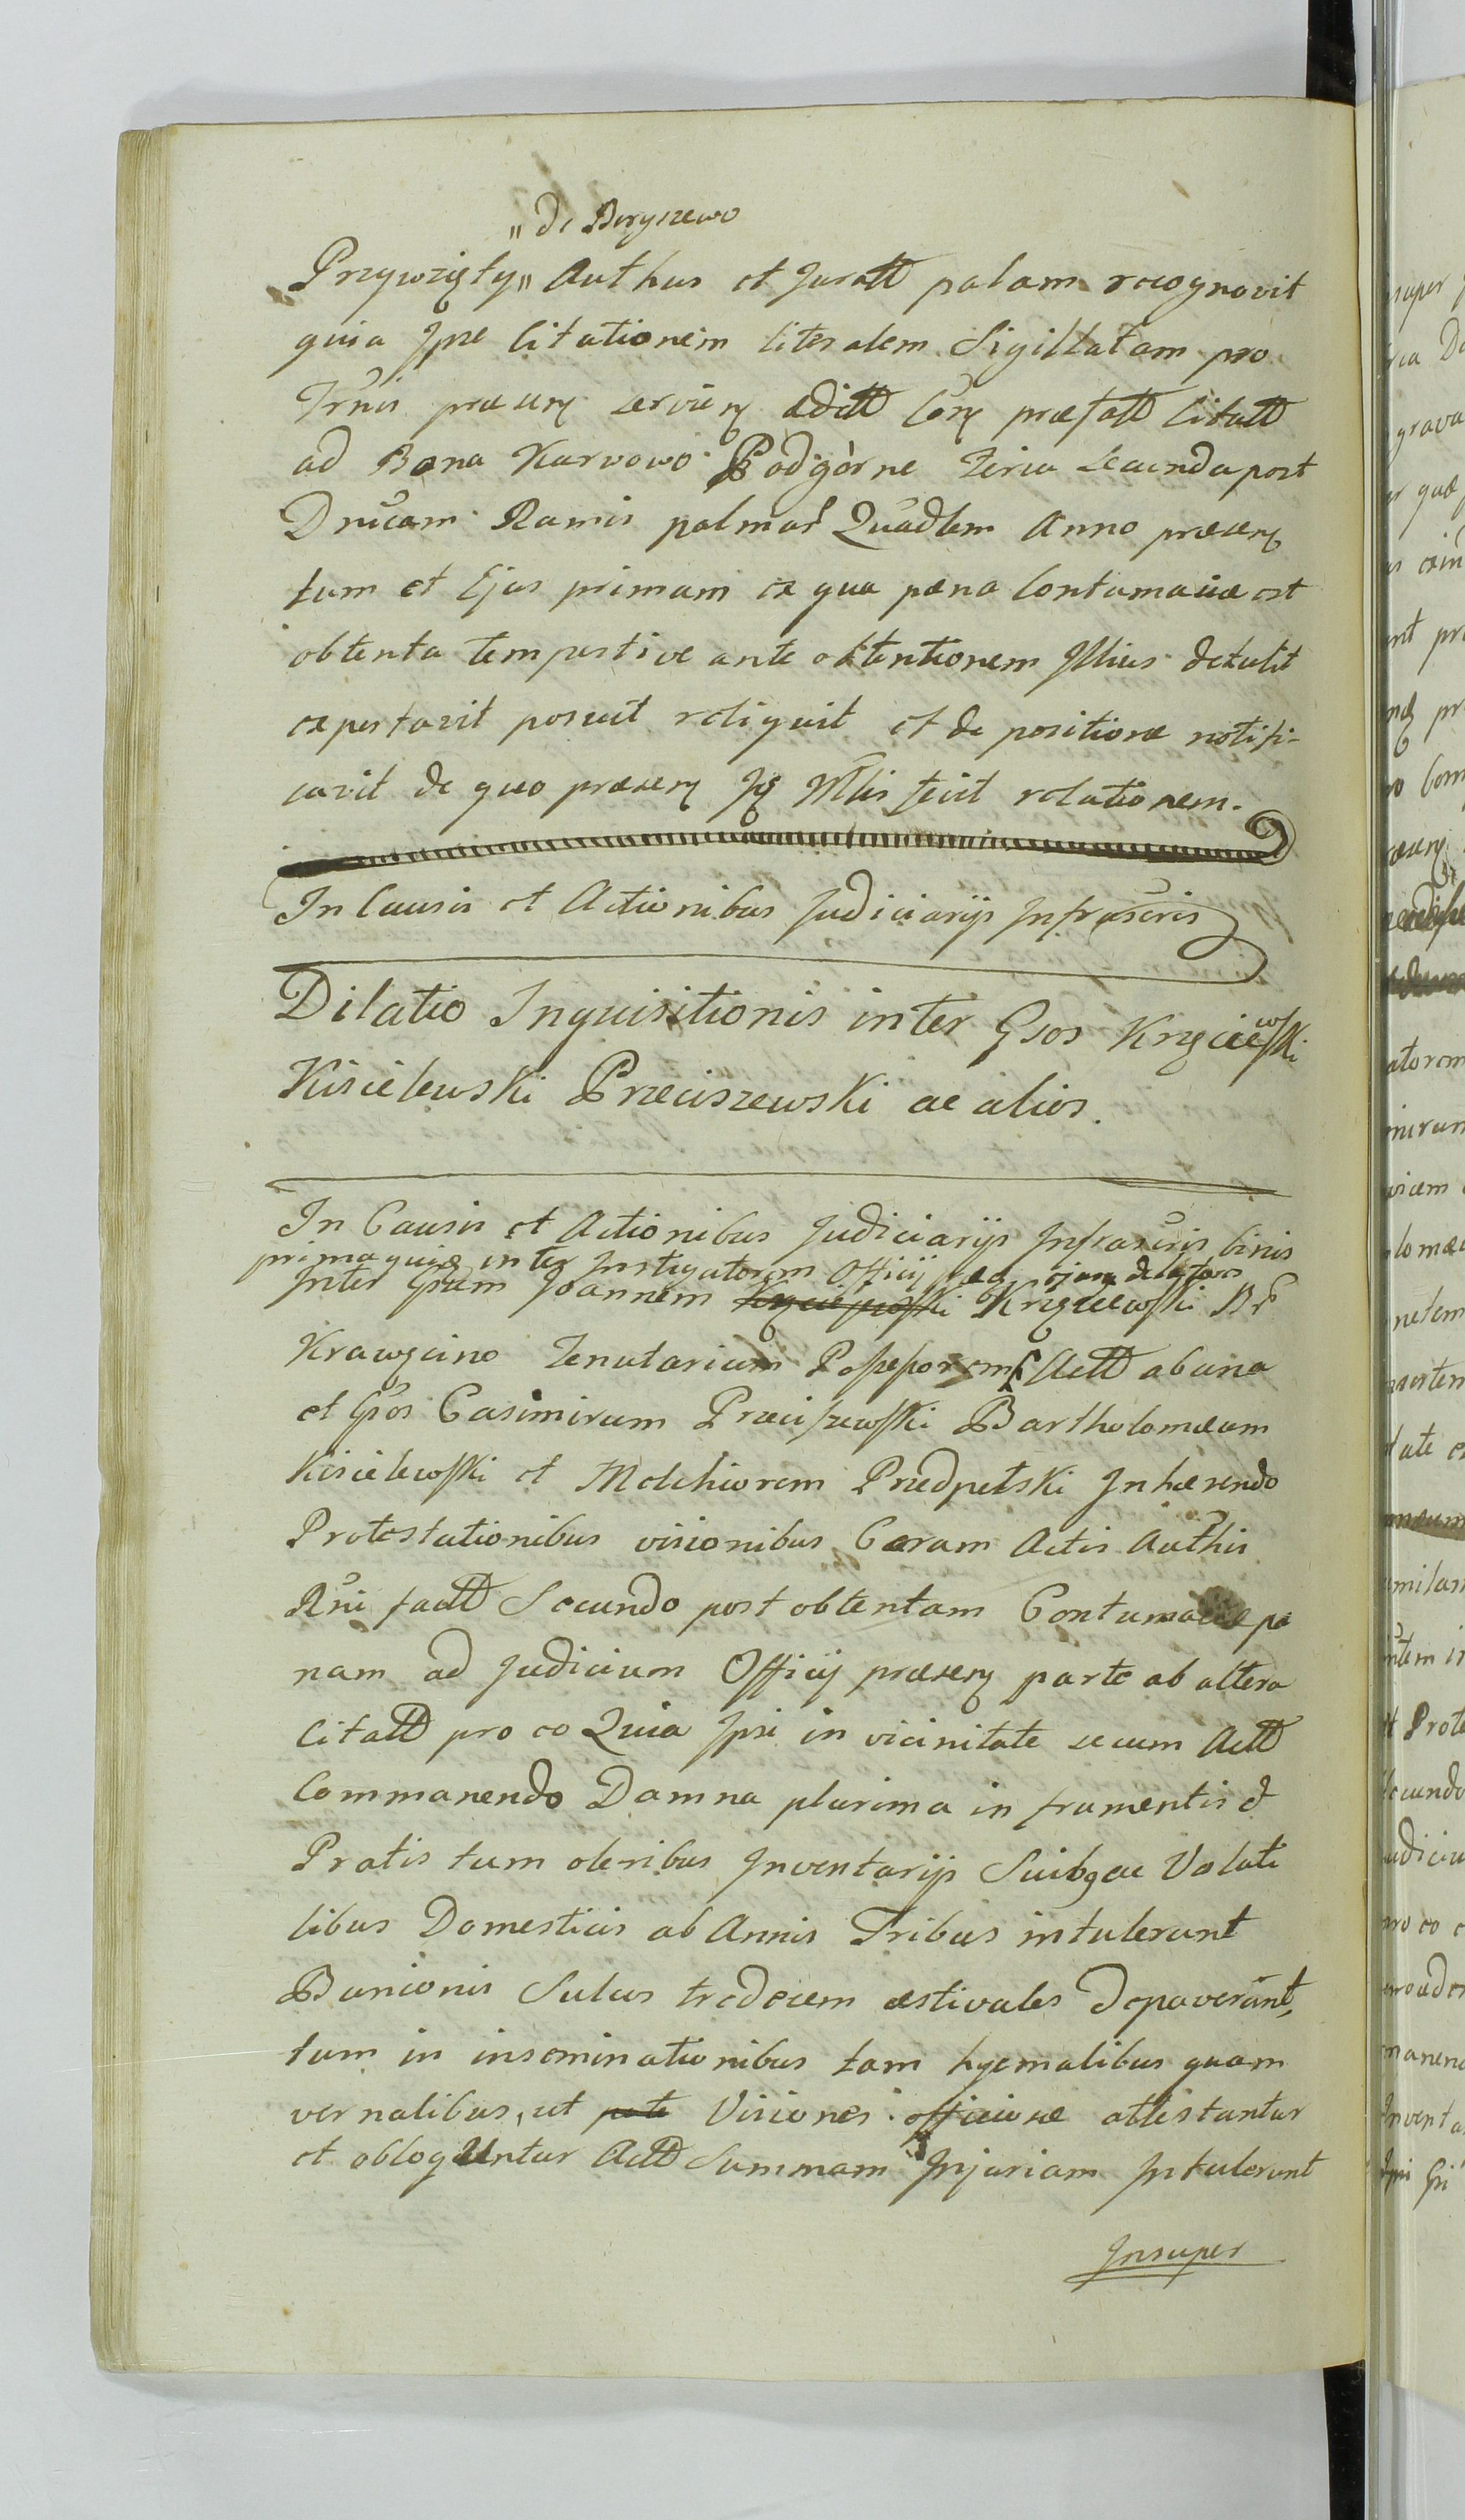 „de Boryszewo
Przywzięty„ Authus et Juratt palam recognovit
quia Ipse Citationem literalem Sigillatam pro
Trnis præsen servien aditt Cor præfatt Citatt
ad Bona Karwowo Podgòrne Feria Secunda post
Dnicam Ramis palmar Quadlem Anno præsen
tum et Ejus primam ex qua pæna Contumaciæ est
obtenta tempestive ante obtentionem Illius detulit
exportavit posuit reliquit et de positione notifi-
cavit de quo præsen Mtlis fecit relationem.
In Causis et Actionibus Judiciarijs Infrascris
Dilatio Inquisitionis inter Gsos Krzęciewski
Kisielewski Przeciszewski ac alios.
In Causis et Actionibus Judiciarijs Infrascris binis
prima quidę inter Instigatorem Officij ejusq delatores
Inter Gsum Joannem Krzęciewski
Krawęcino Tenutarium Actt ab una
et Gsos Casimirum Przeciszewski Bartholomæum
Kisielewski et Melchiorem Przedpełski Inhærendo
Protestationibus visionibus Coram Actis Authis
Rni factt Secundo post obtentam Contumaciæ pæ
nam ad Judicium Officij præsen parte ab altera
Citatt pro eo Quia Ipsi in vicinitate secum Actt
Commanendo Damna plurima in frumentis et
Pratis tum oleribus Inventarijs Suibq ac Volati
libus Domesticis ab Annis Tribus intulerunt
Bunionis Sulcos tredecem æstivales depaverant,
tum in inseminationibus tam hyemalibus quam
vernalibus, ut Visiones officiosæ attestantur
et obloquntur Actt Summam Injuriam Intulerunt
Insuper